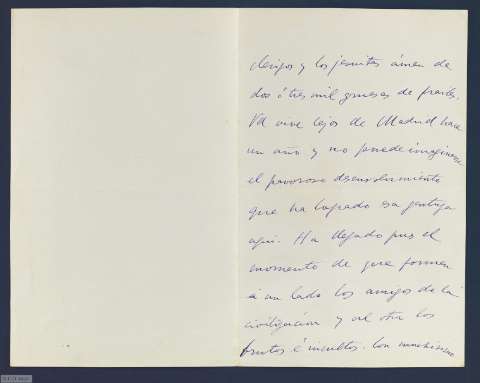 clerigos y los jesuitas ámen de
dos ó tres mil gruesas de frailes.
Vd vive lejos de Madrid hace
un año y no puede imaginarse
el pavoroso desenvolvimiento
que ha logrado esa gentuza
aqui. Ha llegado pues el
momento de que formen
á un lado los amigos de la
civilización y al otro los
brutos é incultos. Con muchisimo